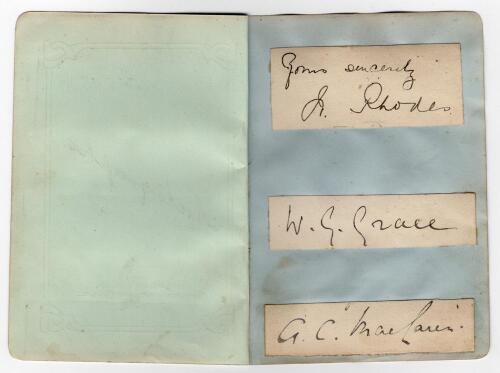 Yours sincerely
W. Rhodes.
W. G. Grace
A. C. MacLaren.